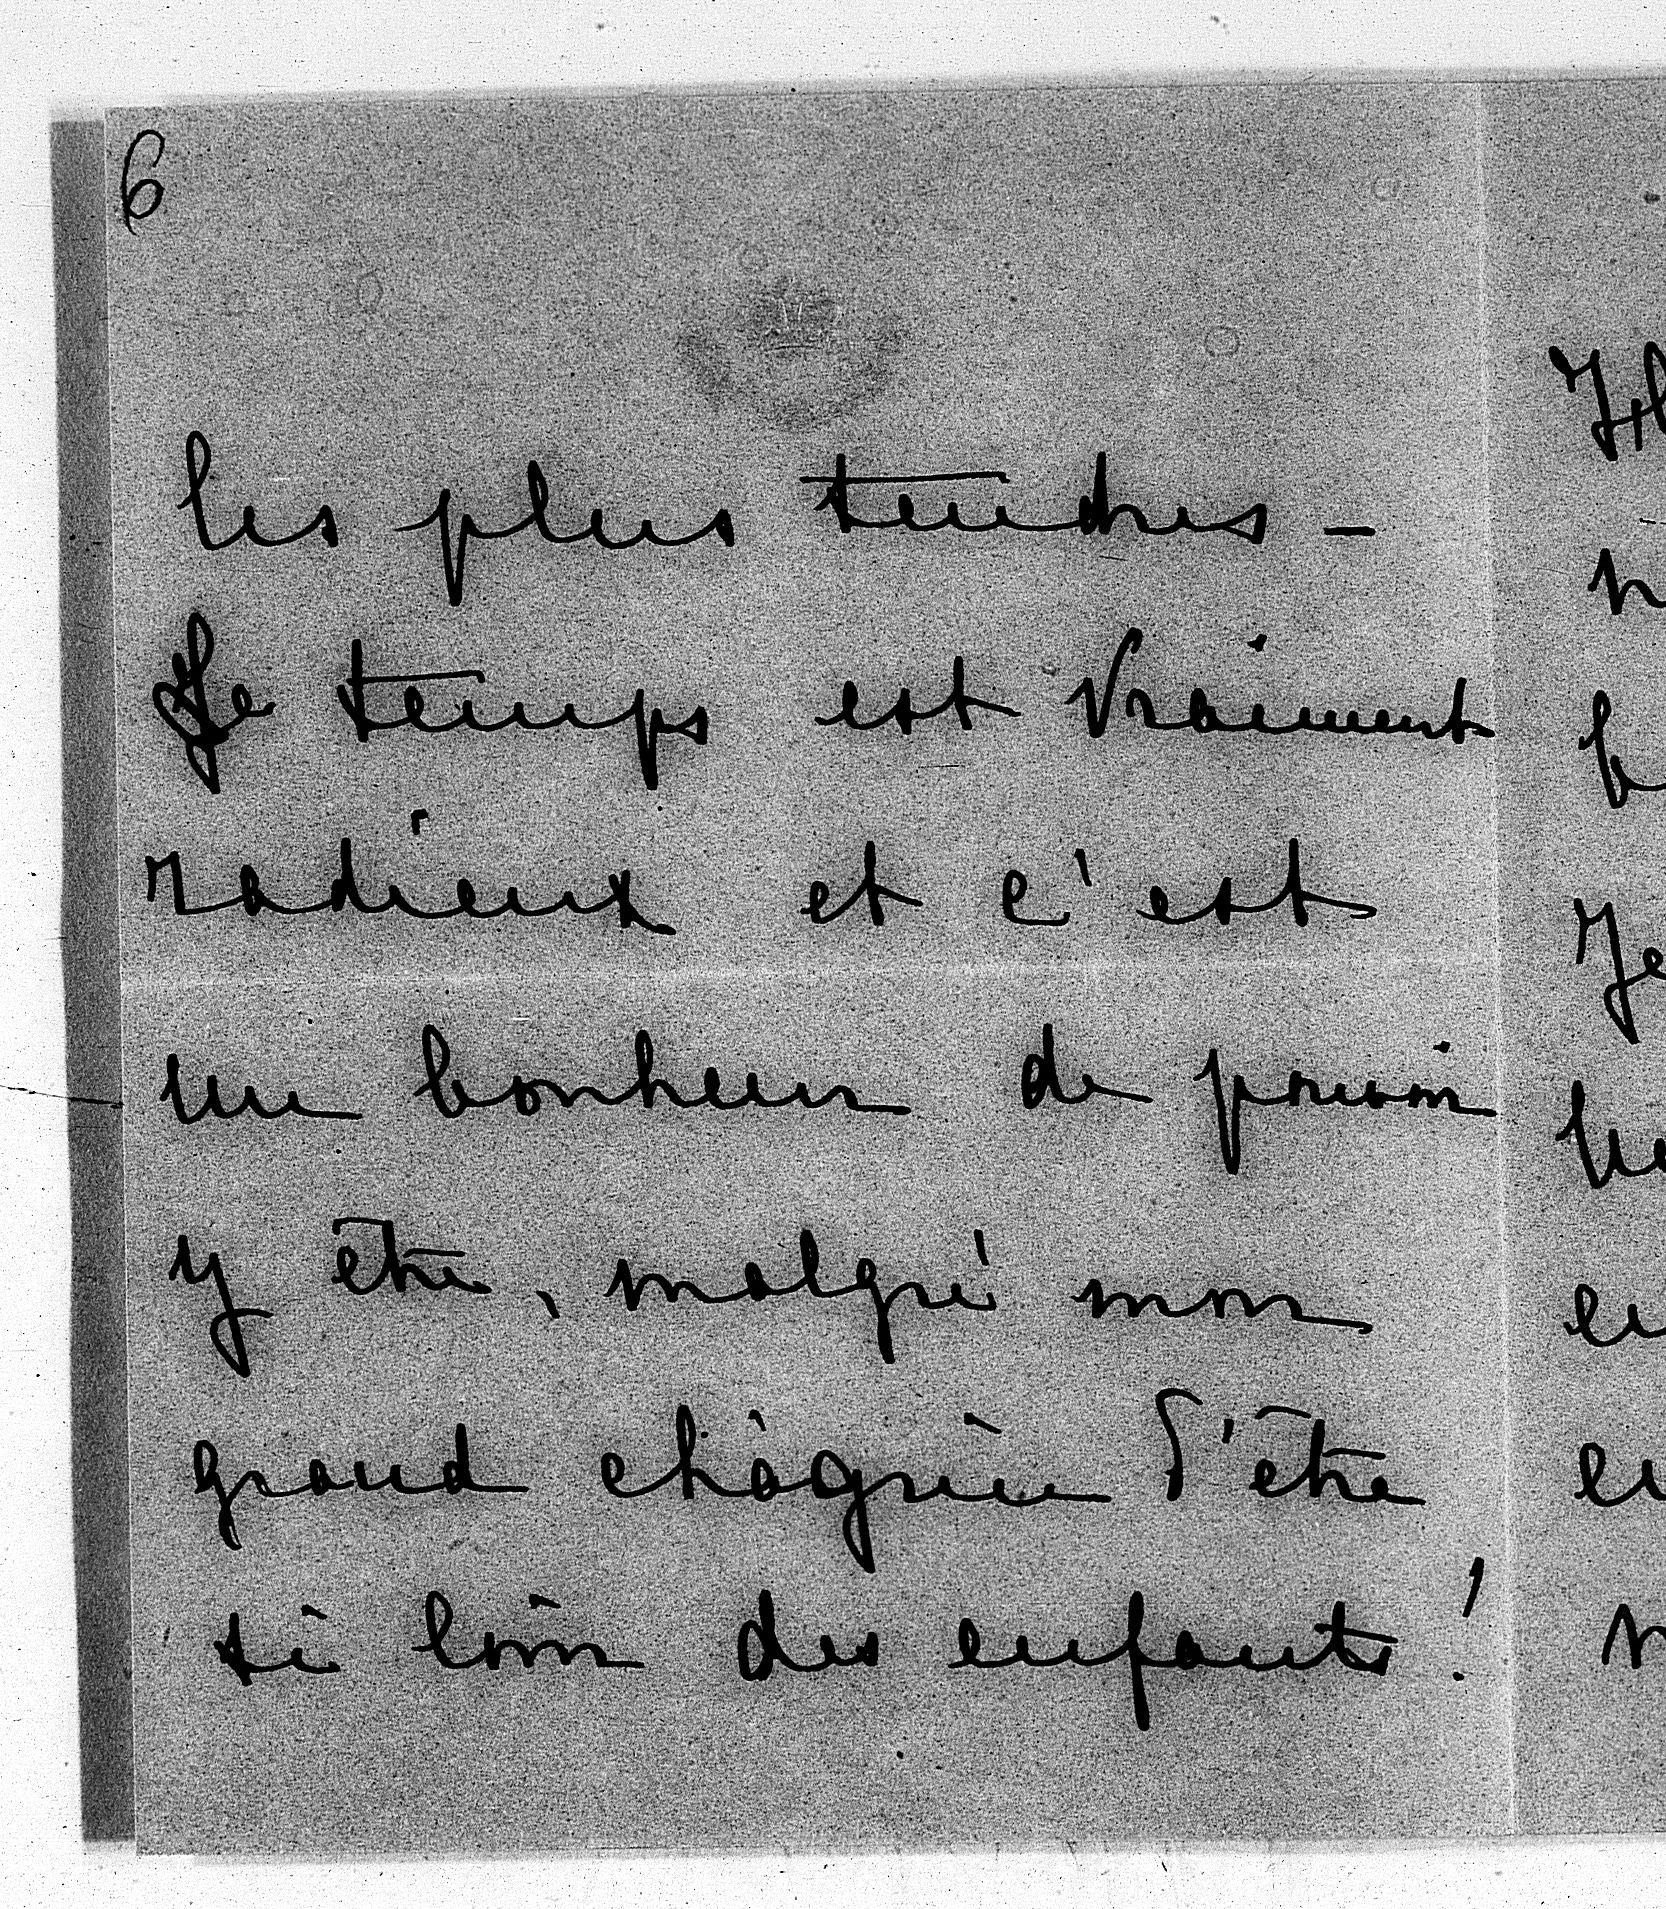 6
les plus tendres –
Le temps est vraiment
radieux et c'est
un bonheur de pouvoir
y être, malgré mon
grand chagrin d'être
si loin des enfants!